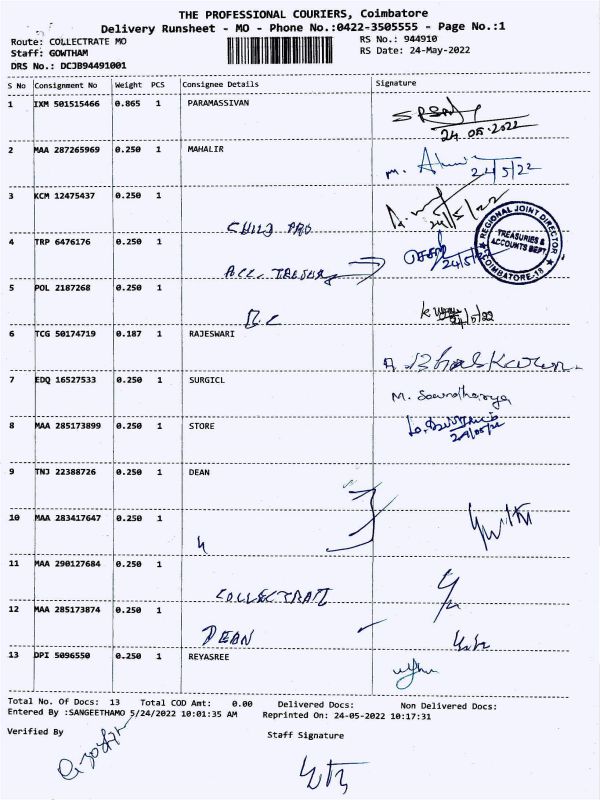 THE PROFESSIONAL COURIERS, Coimbatore
Delivery Runsheet - MO - Phone No.:0422-3505555 - Page No.:1
Route: COLLECTRATE MO
RS No.: 944910
Staff: GOWTHAM
RS Date: 24-May-2022
DRS No.: DCJB94491001
S No Consignment No Weight PCS Consignee Details Signature
1 IXM 501515466 0.865 1 PARAMASSIVAN
24.05.2022
2 MAA 287265969 0.250 1 MAHALIR
24/5/22
3 KCM 12475437 0.250 1
24/5/22
CHILD PRO
4 TRP 6476176 0.250 1
24/5/22
REGIONAL JOINT DIRECTOR
TREASURIES &
ACCOUNTS DEPT
COIMBATORE-18
5 POL 2187268 0.250 1
24/5/22
6 TCG 50174719 0.187 1 RAJESWARI
A. Bhaskaran
7 EDQ 16527533 0.250 1 SURGICL
M. Soundharya
8 MAA 285173899 0.250 1 STORE
24/05/22
9 TNJ 22388726 0.250 1 DEAN
10 MAA 283417647 0.250 1
11 MAA 290127684 0.250 1
COLLECTRATE
12 MAA 285173874 0.250 1
DEAN
13 DPI 5096550 0.250 1 REYASREE
Total No. Of Docs: 13 Total COD Amt: 0.00 Delivered Docs: Non Delivered Docs:
Entered By :SANGEETHAMO 5/24/2022 10:01:35 AM Reprinted On: 24-05-2022 10:17:31
Verified By
Staff Signature